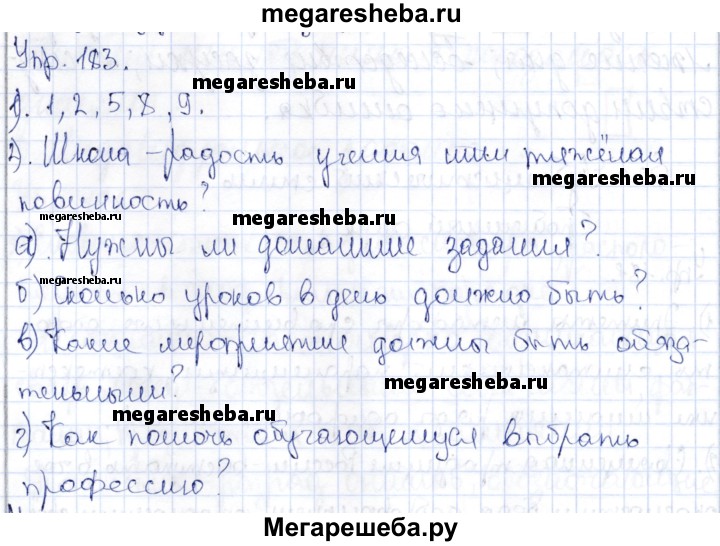 megaresheba.ru
Упр. 183.
megaresheba.ru
1). 1, 2, 5, 8, 9.
2). Школа – радость учения или тяжёлая
megaresheba.ru
повинность?
megaresheba.ru
megaresheba.ru
а). Нужны ли домашние задания?
megaresheba.ru
б) Сколько уроков в день должно быть?
в) Какие мероприятие должны быть обяза-
тельными?
megaresheba.ru
megaresheba.ru
г) Как помочь обучающемуся выбрать
профессию?
Мегарешеба.ру